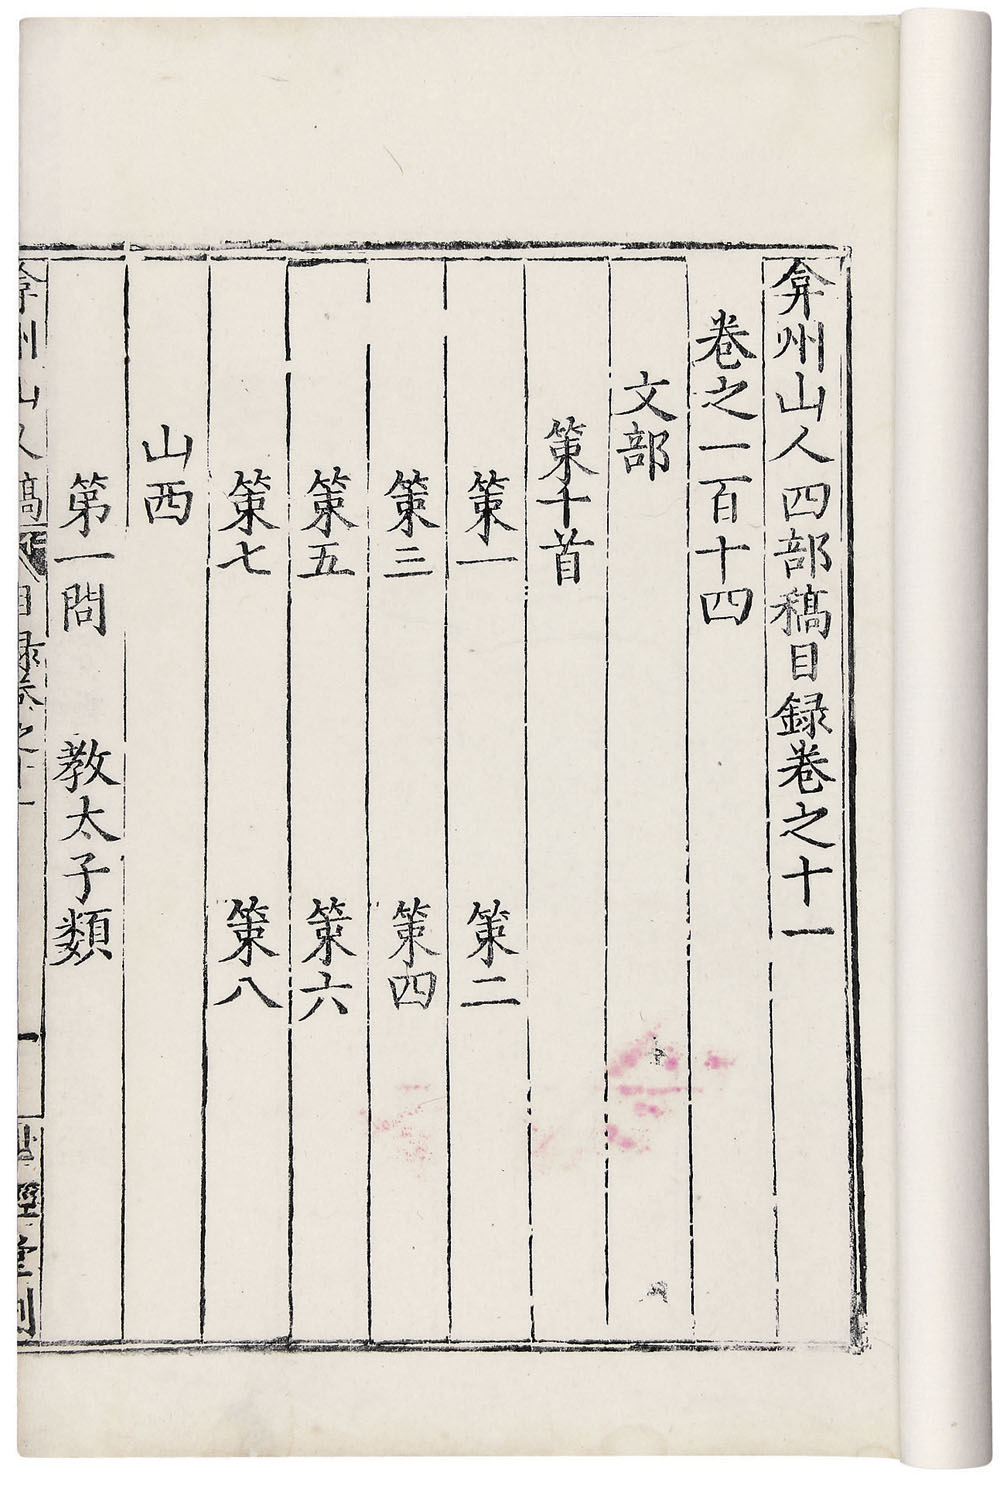 弇州山人四部稿目録卷之十一
卷之一百十四
文部
策十首
策一　策二
策三　策四
策五　策六
策七　策八
山西
第一問　教太子類
弇州山人稿　目録卷之十一　一　經堂刻